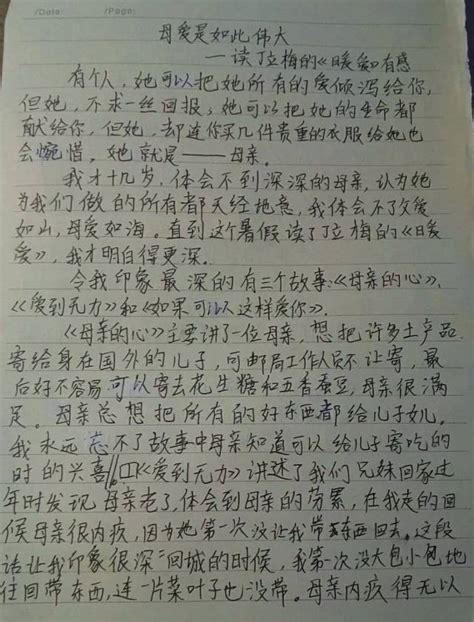 /Date: /Page:
母爱是如此伟大
——读丁立梅的《暖爱》有感
有个人，她可以把她所有的爱倾泻给你，
但她，不求一丝回报；她可以把她的生命都
献给你，但她，却连你买几件贵重的衣服给她也
会惋惜。她就是——母亲。
我才十几岁，体会不到深深的母亲，认为她
为我们做的所有都天经地意，我体会不了父爱
如山，母爱如海。直到这个暑假读了丁立梅的《暖
爱》，我才明白得更深。
令我印象最深的有三个故事：《母亲的心》、
《爱到无力》和《如果可以这样爱你》。
《母亲的心》主要讲了一位母亲，想把许多土产品
寄给身在国外的儿子，可邮局工作人员不让寄，最
后好不容易可以寄去花生糖和五香蚕豆，母亲很满
足。母亲总想把所有的好东西都给儿子女儿。
我永远忘不了故事中母亲知道可以给儿子寄吃的
时的兴喜。《爱到无力》讲述了我们兄妹回家过
年时发现母亲老了，体会到母亲的劳累，在我走的回
候母亲很内疚，因为她第一次没让我带东西回去。这段
话让我印象很深“回城的时候，我第一次没大包小包地
往回带东西，连一片菜叶子也没带。母亲内疚得无以